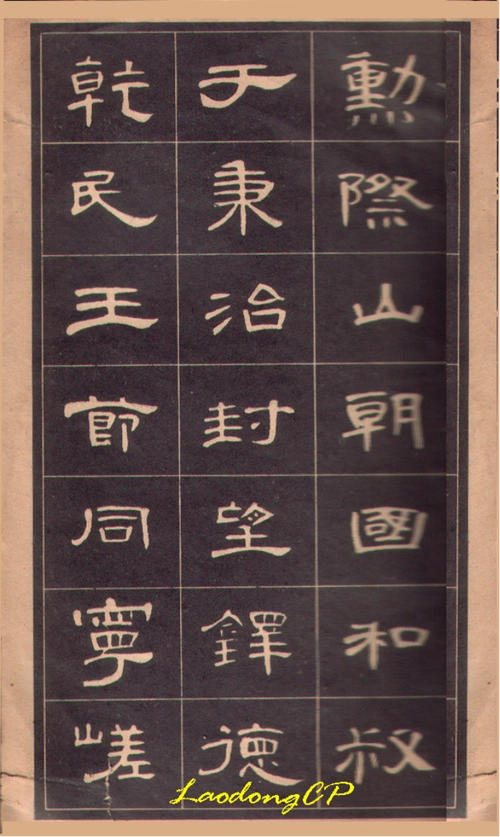 勳際山朝國和叔
于秉治封望鐸德
乾民王節同寧嵯
LaodongCP